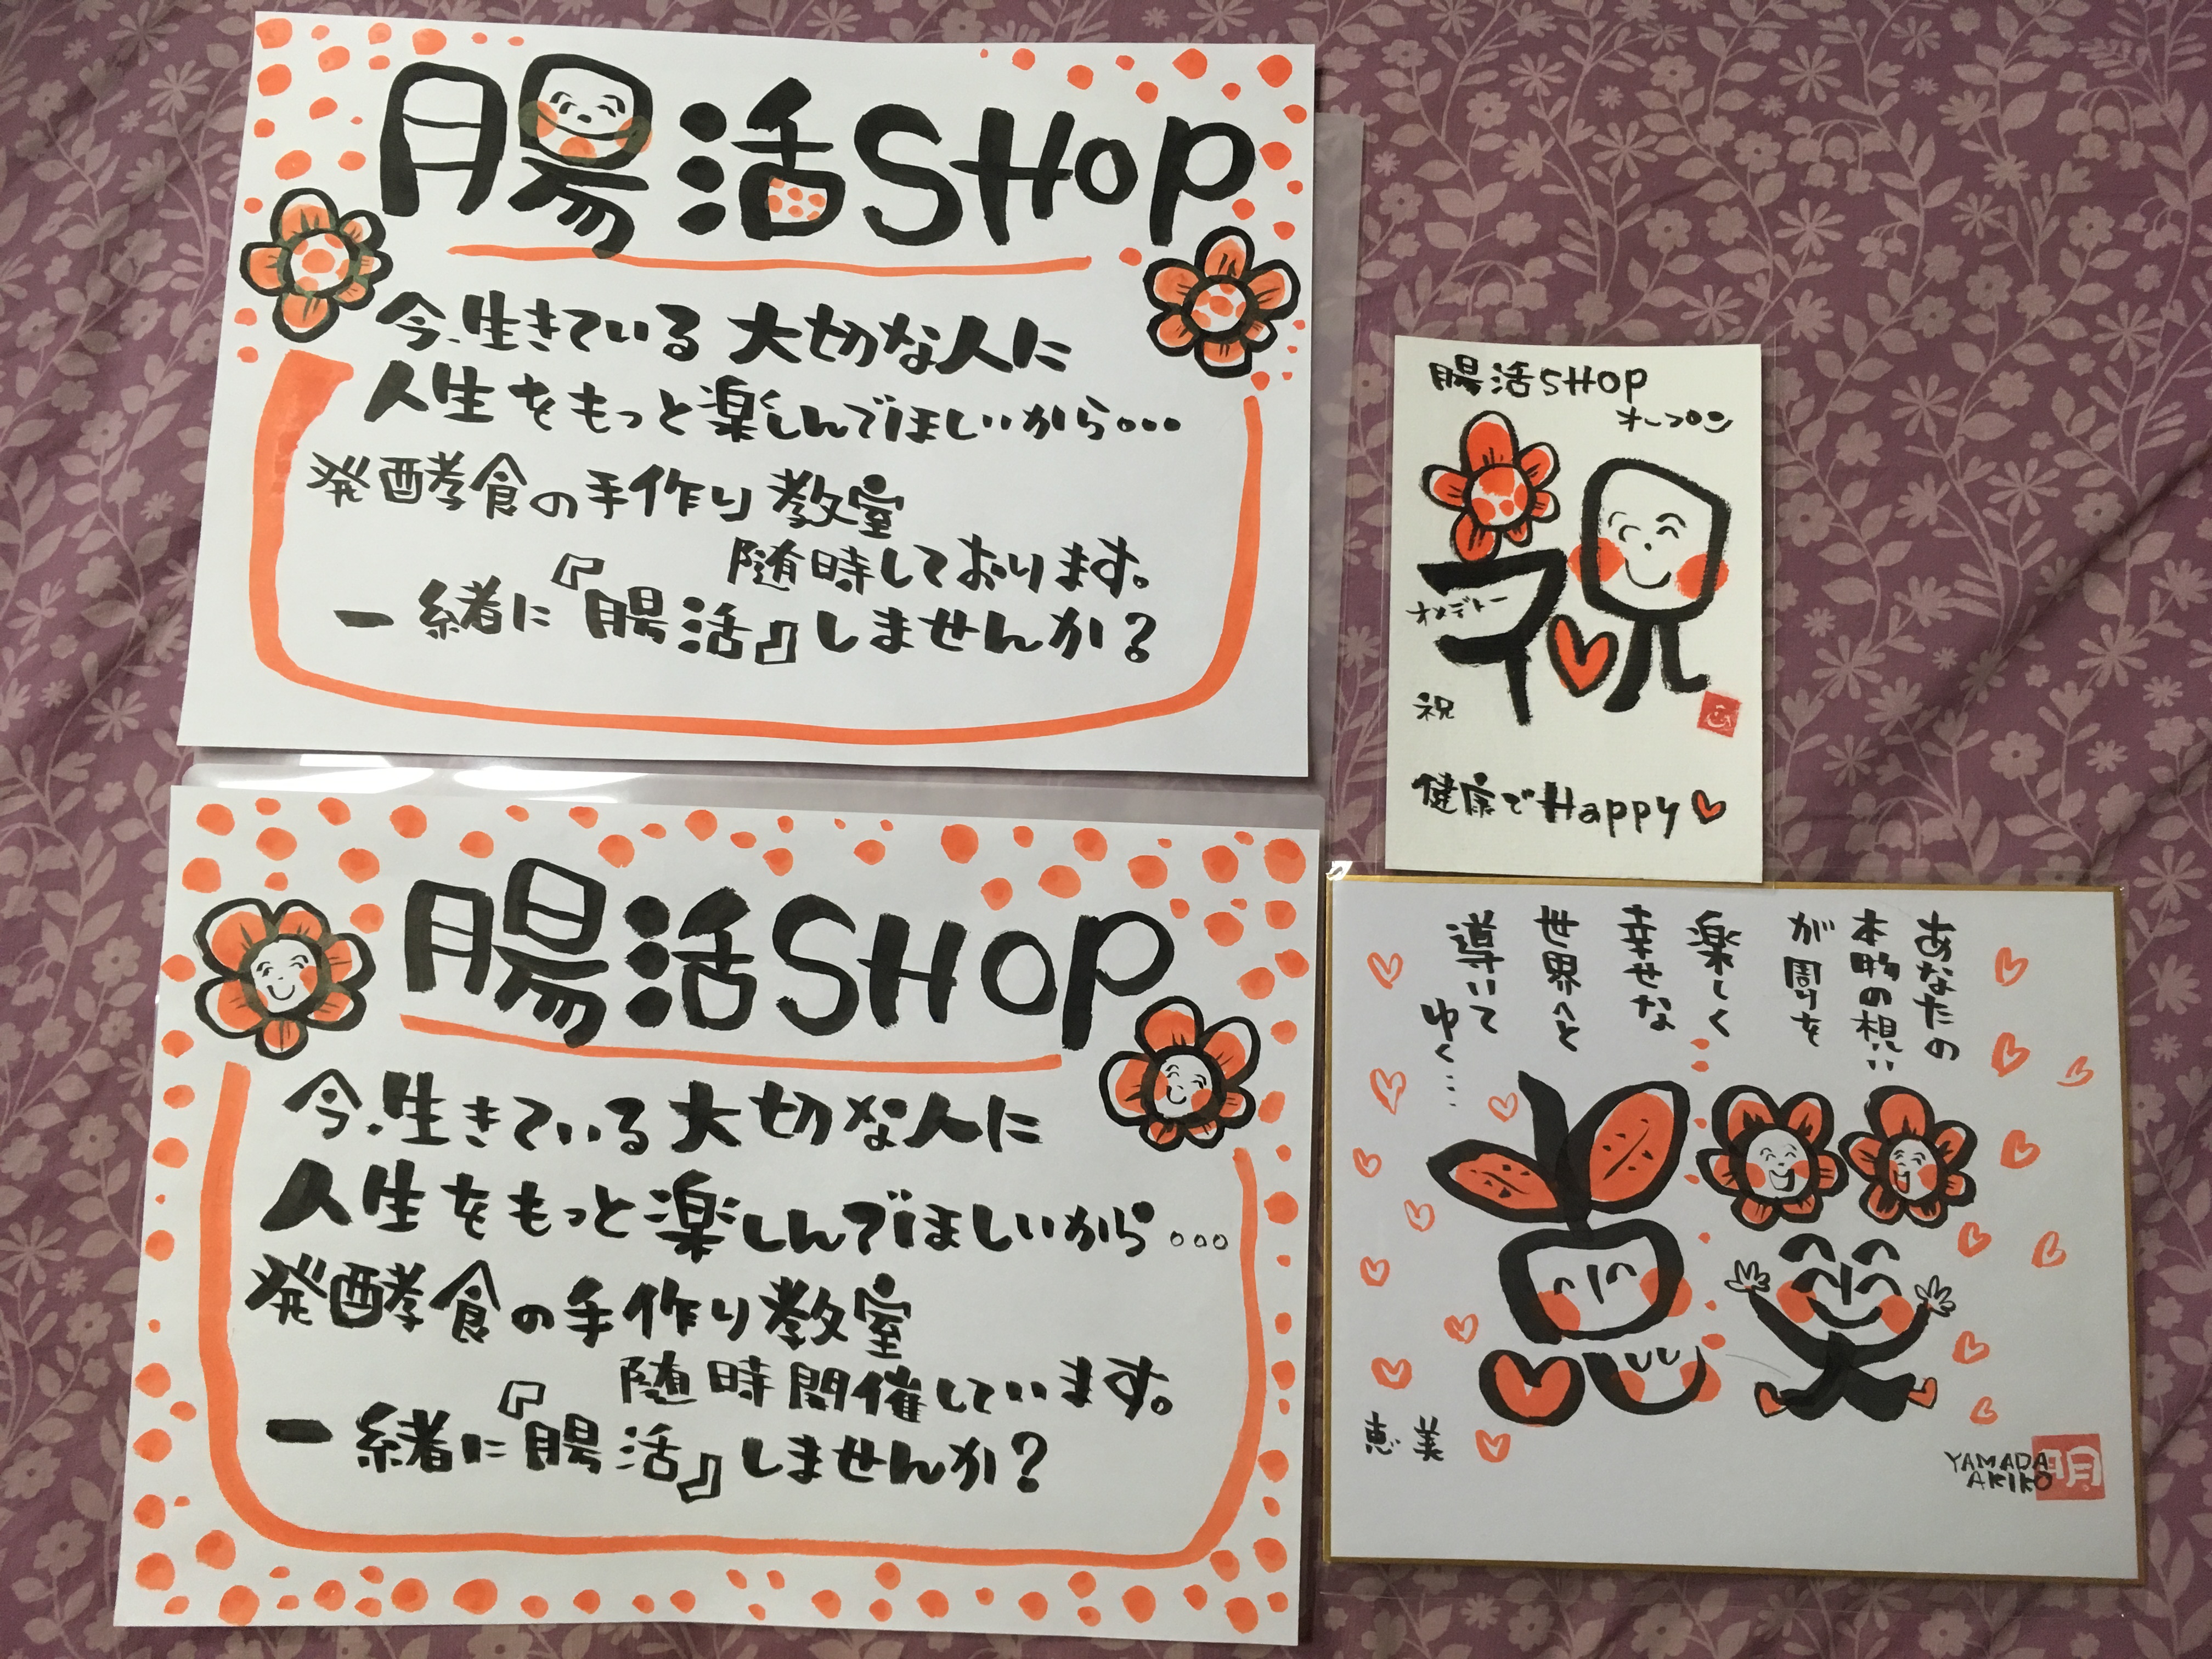 腸活SHOP
今、生きている大切な人に
人生をもっと楽しんでほしいから...
発酵食の手作り教室
随時しております。
一緒に『腸活』しませんか?
腸活SHOP
今、生きている大切な人に
人生をもっと楽しんでほしいから...
発酵食の手作り教室
随時開催しています。
一緒に『腸活』しませんか?
腸活SHOP
オープン
祝
オメデトー
祝
健康でHappy
あなたの
本物の想い
が周りを
楽しく
幸せな
世界へと
導いて
ゆく…
恵美
YAMADA
AKIKO
明